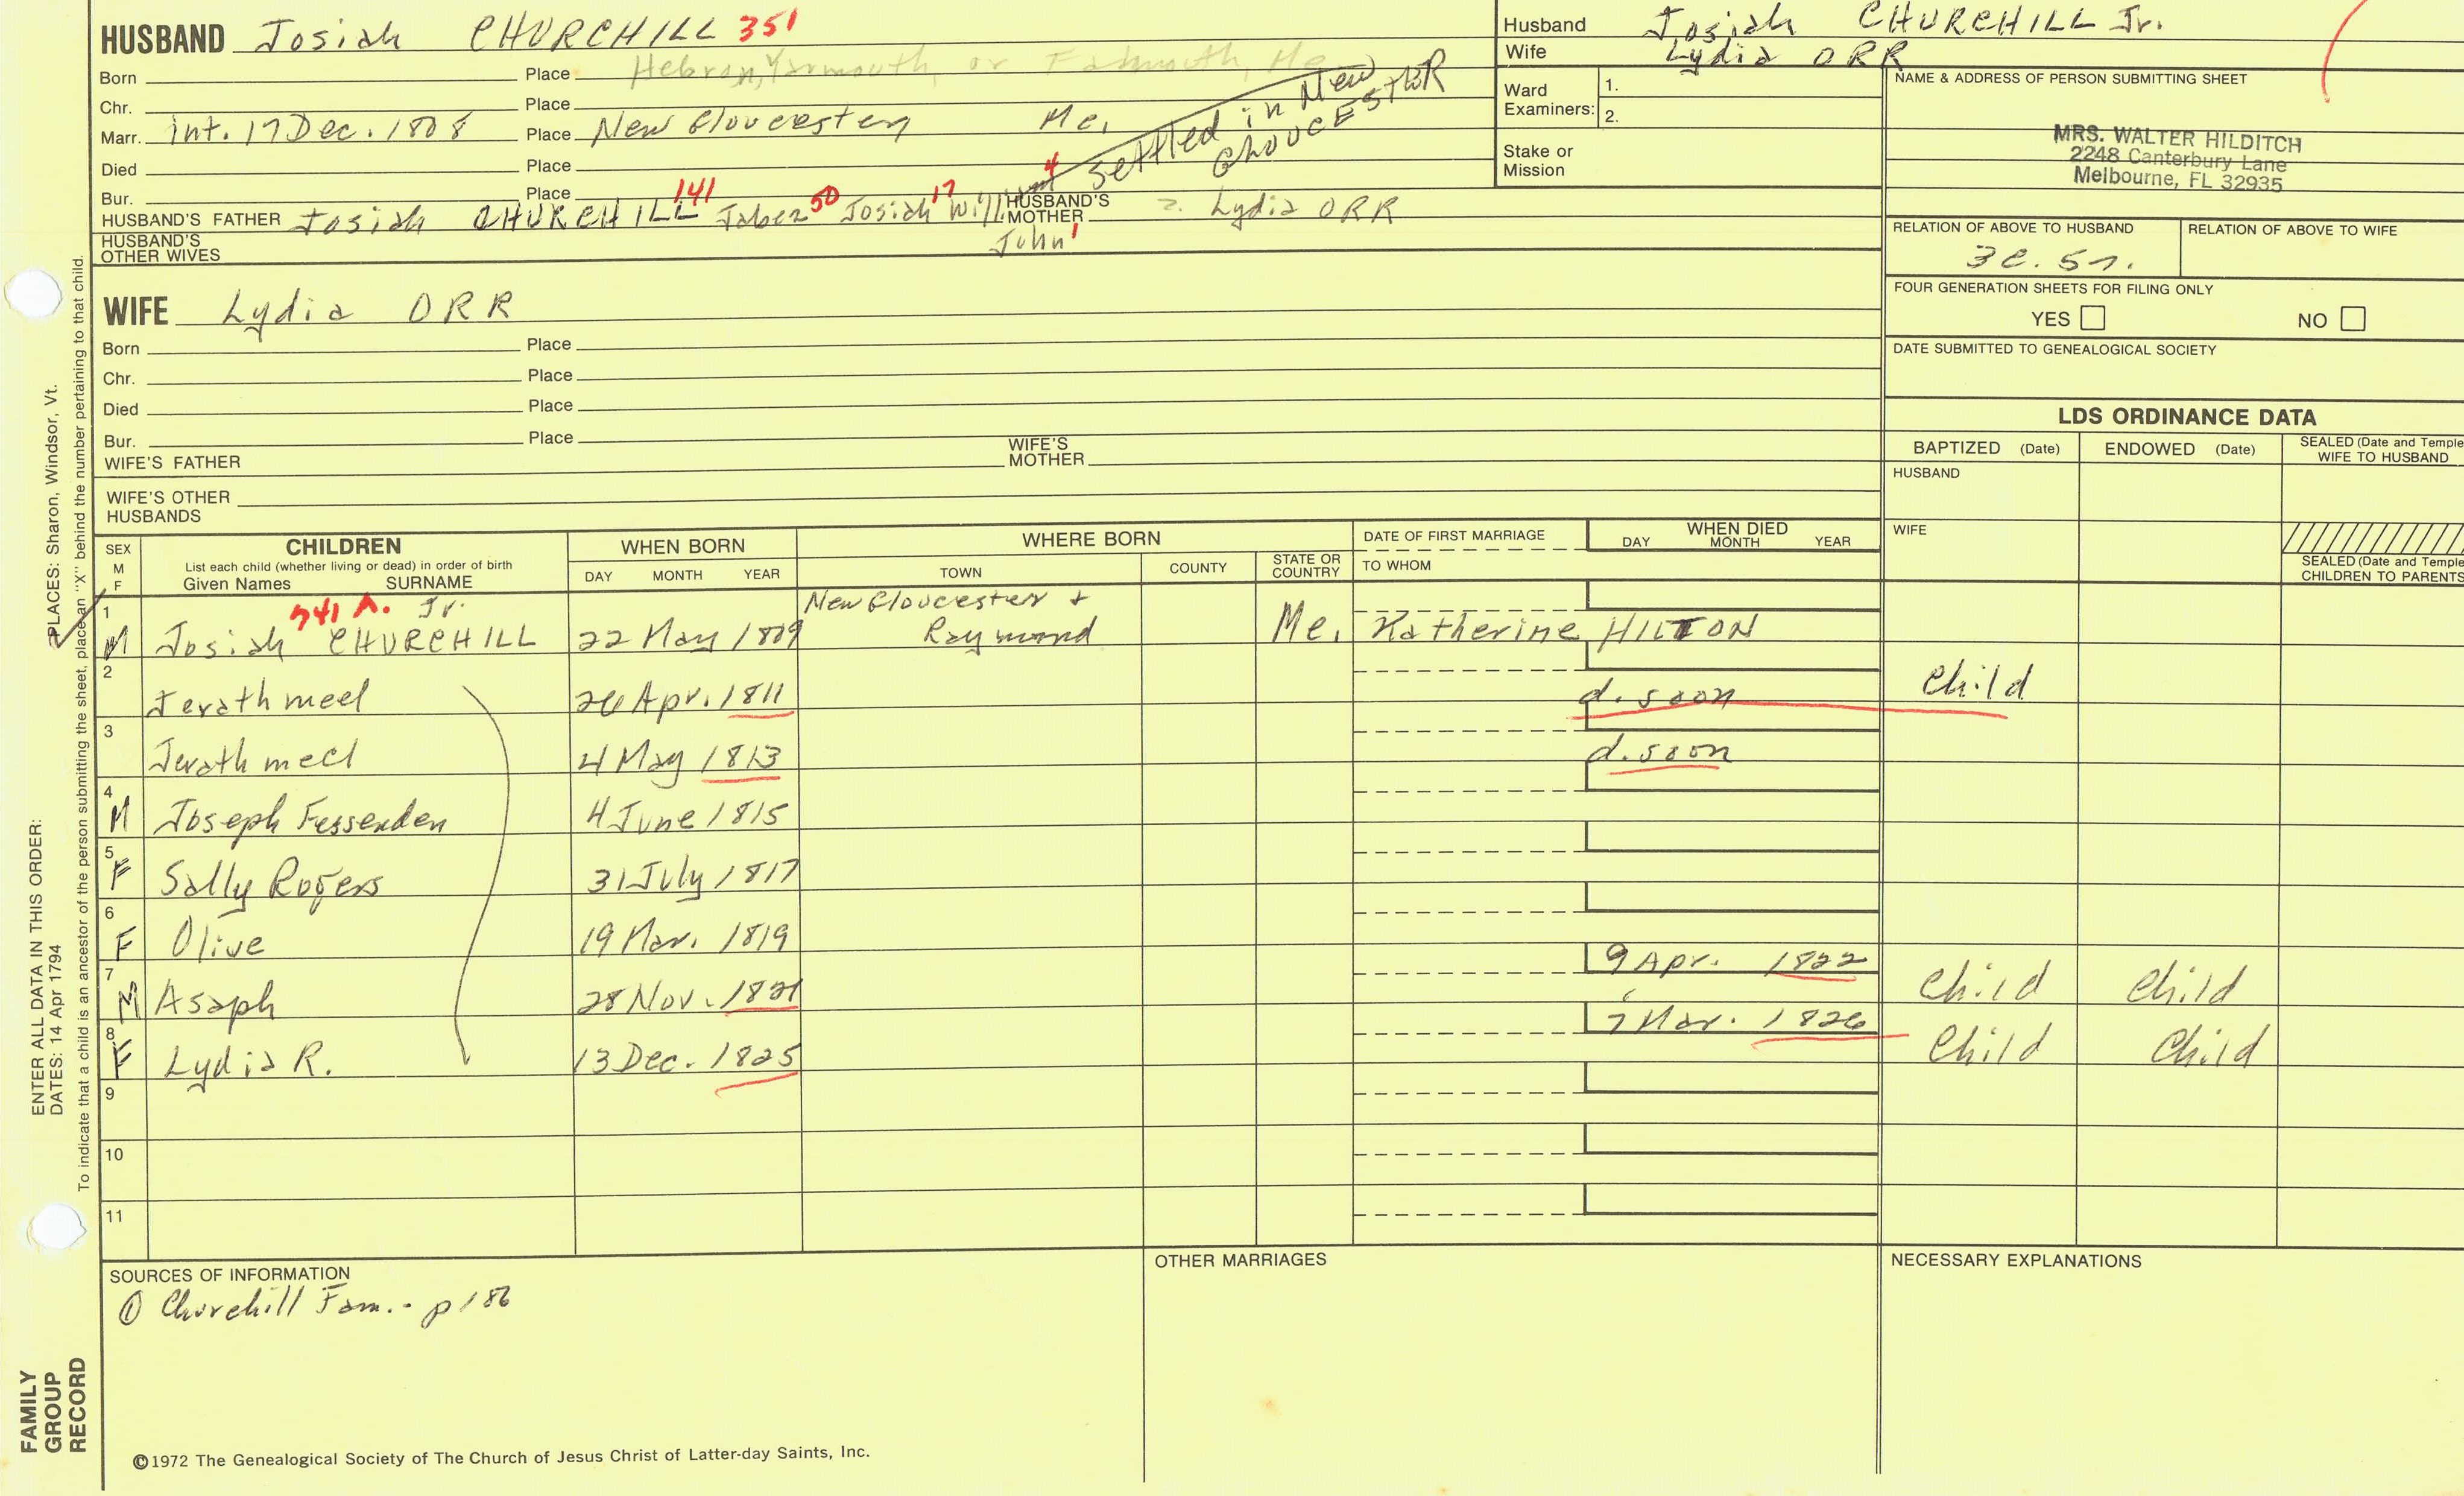 HUSBAND Josiah CHURCHILL 351
Born Place Hebron, Yarmouth, or Falmouth, Me
Chr. Place
Marr. int. 17 Dec. 1808 Place New Gloucester, Me.
settled in New GLOUCESTER
Died Place
Bur. Place
HUSBAND'S FATHER Josiah CHURCHILL 141 Jabez 50 Josiah 17 Will 4 John 1
HUSBAND'S MOTHER 2. Lydia ORR
HUSBAND'S OTHER WIVES
Husband Josiah CHURCHILL Jr.
Wife Lydia ORR
Ward Examiners: 1.
2.
Stake or Mission
NAME & ADDRESS OF PERSON SUBMITTING SHEET
MRS. WALTER HILDITCH
2248 Canterbury Lane
Melbourne, FL 32935
RELATION OF ABOVE TO HUSBAND
3c. 5r.
RELATION OF ABOVE TO WIFE
FOUR GENERATION SHEETS FOR FILING ONLY
YES NO
DATE SUBMITTED TO GENEALOGICAL SOCIETY
WIFE Lydia ORR
Born Place
Chr. Place
Died Place
Bur. Place
WIFE'S FATHER WIFE'S MOTHER
WIFE'S OTHER HUSBANDS
LDS ORDINANCE DATA
BAPTIZED (Date) ENDOWED (Date) SEALED (Date and Temple WIFE TO HUSBAND
HUSBAND
WIFE
SEALED (Date and Temple CHILDREN TO PARENTS
SEX M F
CHILDREN
List each child (whether living or dead) in order of birth
Given Names SURNAME
WHEN BORN
DAY MONTH YEAR
WHERE BORN
TOWN COUNTY STATE OR COUNTRY
DATE OF FIRST MARRIAGE
TO WHOM
WHEN DIED
DAY MONTH YEAR
1 M Josiah CHURCHILL 741 A. Jr. 22 May 1809 New Gloucester + Raymond Me. Katherine HILTON
2 Jerathmeel 26 Apr. 1811 d. soon Child
3 Jerathmeel 4 May 1813 d. soon
4 M Joseph Fessenden 4 June 1815
5 F Sally Rogers 31 July 1817
6 F Olive 19 Mar. 1819
7 M Asaph 28 Nov. 1821 9 Apr. 1822 Child Child
8 F Lydia R. 13 Dec. 1825 7 Mar. 1826 Child Child
9
10
11
SOURCES OF INFORMATION
① Churchill Fam. - p 186
OTHER MARRIAGES
NECESSARY EXPLANATIONS
©1972 The Genealogical Society of The Church of Jesus Christ of Latter-day Saints, Inc.
ENTER ALL DATA IN THIS ORDER:
DATES: 14 Apr 1794
PLACES: Sharon, Windsor, Vt.
To indicate that a child is an ancestor of the person submitting the sheet, place an "X" behind the number pertaining to that child.
FAMILY GROUP RECORD